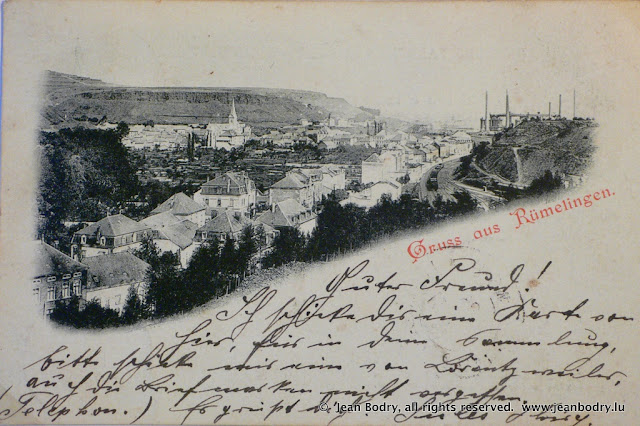 Gruss aus Rümelingen.
Guter Freund!
Ich schicke dir eine Karte von
hier, für in deine Sammlung,
bitte schicke mir eine von
auch die Briefmarken nicht vergessen.
(Telephon.) Es grüßt dich
© Jean Bodry, all rights reserved. www.jeanbodry.lu